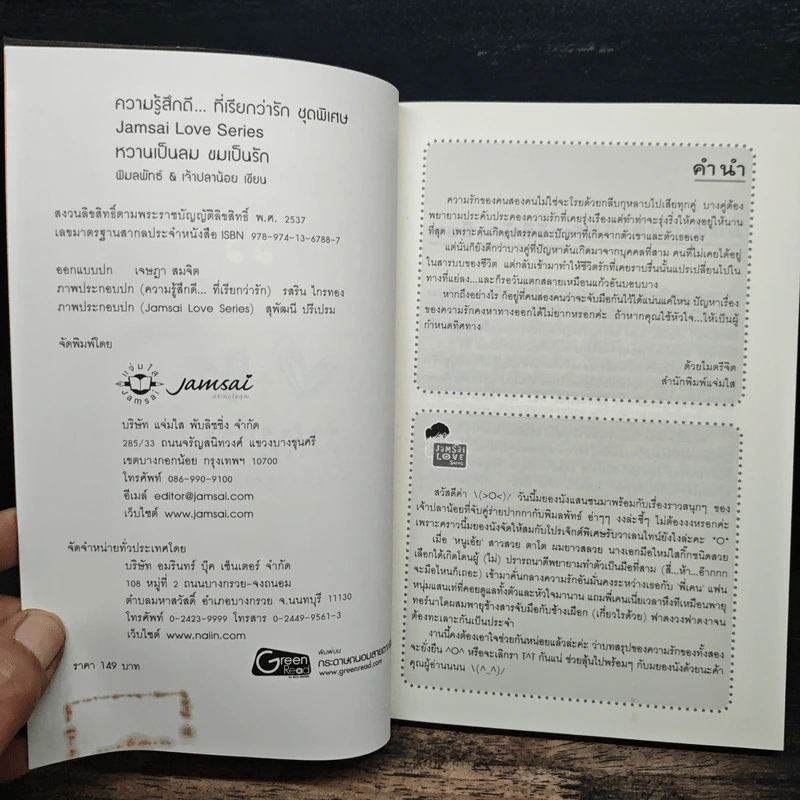 ความรู้สึกดี... ที่เรียกว่ารัก ชุดพิเศษ
Jamsai Love Series
หวานเป็นลม ขมเป็นรัก
พิมลพัทธ์ & เจ้าปลาน้อย เขียน
สงวนลิขสิทธิ์ตามพระราชบัญญัติลิขสิทธิ์ พ.ศ. 2537
เลขมาตรฐานสากลประจำหนังสือ ISBN 978-974-13-6788-7
ออกแบบปก เจษฎา สมจิต
ภาพประกอบปก (ความรู้สึกดี... ที่เรียกว่ารัก) รสริน ไกรทอง
ภาพประกอบปก (Jamsai Love Series) สุพัฒนี ปรีเปรม
จัดพิมพ์โดย
แจ่มใส
Jamsai
Jamsai
บริษัท แจ่มใส พับลิชชิ่ง จำกัด
285/33 ถนนจรัญสนิทวงศ์ แขวงบางขุนศรี
เขตบางกอกน้อย กรุงเทพฯ 10700
โทรศัพท์ 086-990-9100
อีเมล์ editor@jamsai.com
เว็บไซต์ www.jamsai.com
จัดจำหน่ายทั่วประเทศโดย
บริษัท อมรินทร์ บุ๊ค เซ็นเตอร์ จำกัด
108 หมู่ที่ 2 ถนนบางกรวย-จงถนอม
ตำบลมหาสวัสดิ์ อำเภอบางกรวย จ.นนทบุรี 11130
โทรศัพท์ 0-2423-9999 โทรสาร 0-2449-9561-3
เว็บไซต์ www.naiin.com
ราคา 149 บาท
Green Read
พิมพ์บน
กระดาษถนอมสายตา
www.greenread.com
คำนำ
ความรักของคนสองคนไม่ใช่จะโรยด้วยกลีบกุหลาบไปเสียทุกคู่ บางคู่ต้อง
พยายามประคับประคองความรักที่เคยรุ่งเรืองแต่ทำท่าจะรุ่งริ่งให้คงอยู่ให้นาน
ที่สุด เพราะดันเกิดอุปสรรคและปัญหาที่เกิดจากตัวเขาและตัวเธอเอง
แต่นั่นก็ยังดีกว่าบางคู่ที่ปัญหาดันเกิดมาจากบุคคลที่สาม คนที่ไม่เคยได้อยู่
ในสารบบของชีวิต แต่กลับเข้ามาทำให้ชีวิตรักที่เคยราบรื่นนั้นแปรเปลี่ยนไปใน
ทางที่แย่ลง...และก็รอวันแตกสลายเหมือนแก้วอันบอบบาง
หากถึงอย่างไร ก็อยู่ที่คนสองคนว่าจะจับมือกันไว้ได้แน่นแค่ไหน ปัญหาเรื่อง
ของความรักคงหาทางออกได้ไม่ยากหรอกค่ะ ถ้าหากคุณใช้หัวใจ...ให้เป็นผู้
กำหนดทิศทาง
ด้วยไมตรีจิต
สำนักพิมพ์แจ่มใส
JAMSAI
LOVE
Series
สวัสดีค่า \(>O<)/ วันนี้มยองนังแสนซนมาพร้อมกับเรื่องราวสนุกๆ ของ
เจ้าปลาน้อยที่จับคู่ร่ายปากกากับพิมลพัทธ์ อ่าๆๆ งงล่ะซี้ๆ ไม่ต้องงงหรอกค่ะ
เพราะคราวนี้มยองนังจัดให้สมกับโปรเจ็กต์พิเศษรับวาเลนไทน์ยังไงล่ะคะ *O*
เมื่อ 'หนูเอ้ย' สาวสวย ตาโต ผมยาวสลวย นางเอกมือใหม่ใสกิ๊กชนิดสวย
เลือกได้เกิดโดนผู้ (ไม่) ปรารถนาดีพยายามทำตัวเป็นมือที่สาม (สี่...ห้า...อ๊ากกก
จะมือไหนก็เถอะ) เข้ามาคั่นกลางความรักอันมั่นคงระหว่างเธอกับ 'พี่เคน' แฟน
หนุ่มแสนเท่ที่คอยดูแลทั้งตัวและหัวใจมานาน แถมพี่เคนเนี่ยเวลาหึงทีเหมือนพายุ
ทอร์นาโดผสมพายุช้างสารจับมือกับช้างเผือก (เกี่ยวไรด้วย) ฟาดงวงฟาดงาจน
ต้องทะเลาะกันเป็นประจำ
งานนี้คงต้องเอาใจช่วยกันหน่อยแล้วล่ะค่ะ ว่าบทสรุปของความรักของทั้งสอง
จะยั่งยืน ^O^ หรือจะเลิกรา T^T กันแน่ ช่วยลุ้นไปพร้อมๆ กับมยองนังด้วยนะค้า
คุณผู้อ่านนนน \(^_^)/